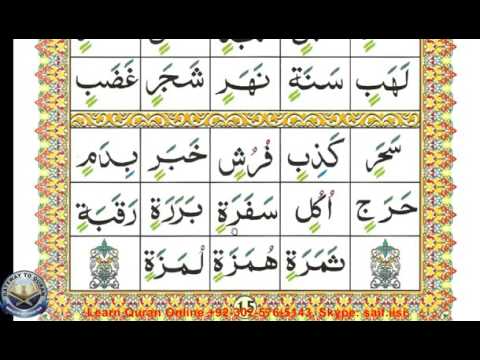 لَهَبٍ سَنَةٍ نَهَرٍ شَجَرٍ غَضَبٍ
سَحَرٍ كَذِبٍ فُرُشٍ خَبَرٍ بِدَمٍ
حَرَجٍ اُكُلٍ سَفَرَةٍ بَرَرَةٍ رَقَبَةٍ
ثَمَرَةٍ هُمَزَةٍ لُمَزَةٍ
15
Learn Quran Online +92-302-576-5143 Skype: saif.iisc